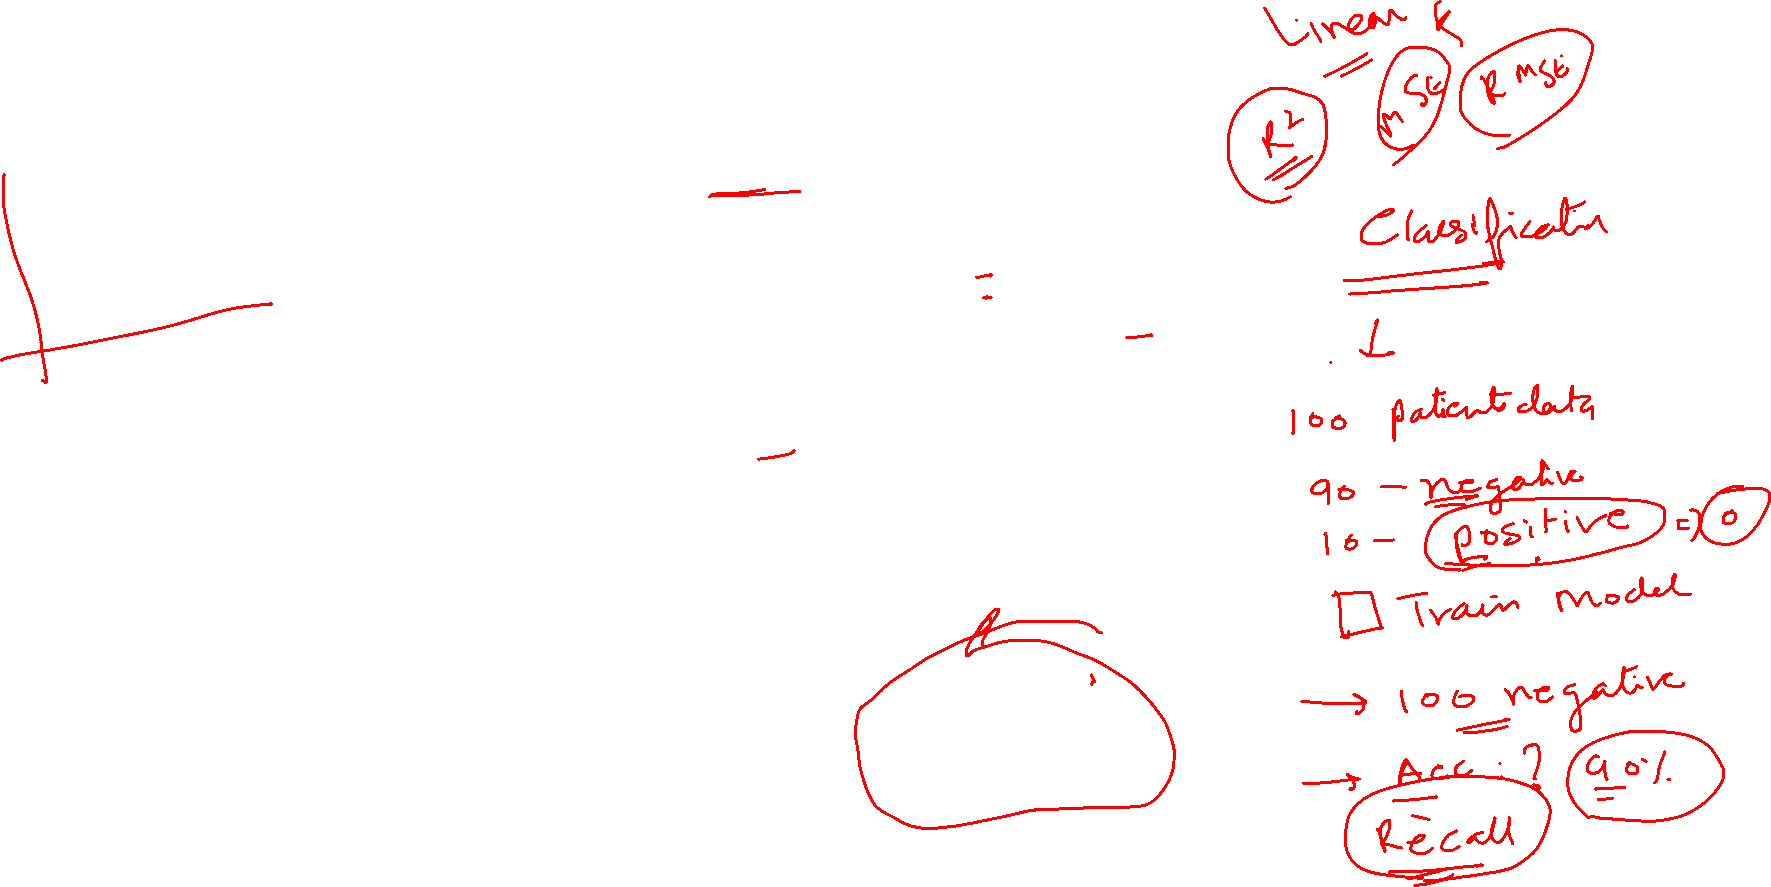 Linear R
R² MSE RMSE
Classification
↓
100 patient data
90 - negative
10 - positive => 0
Train Model
→ 100 negative
→ Acc. ? 90%
Recall